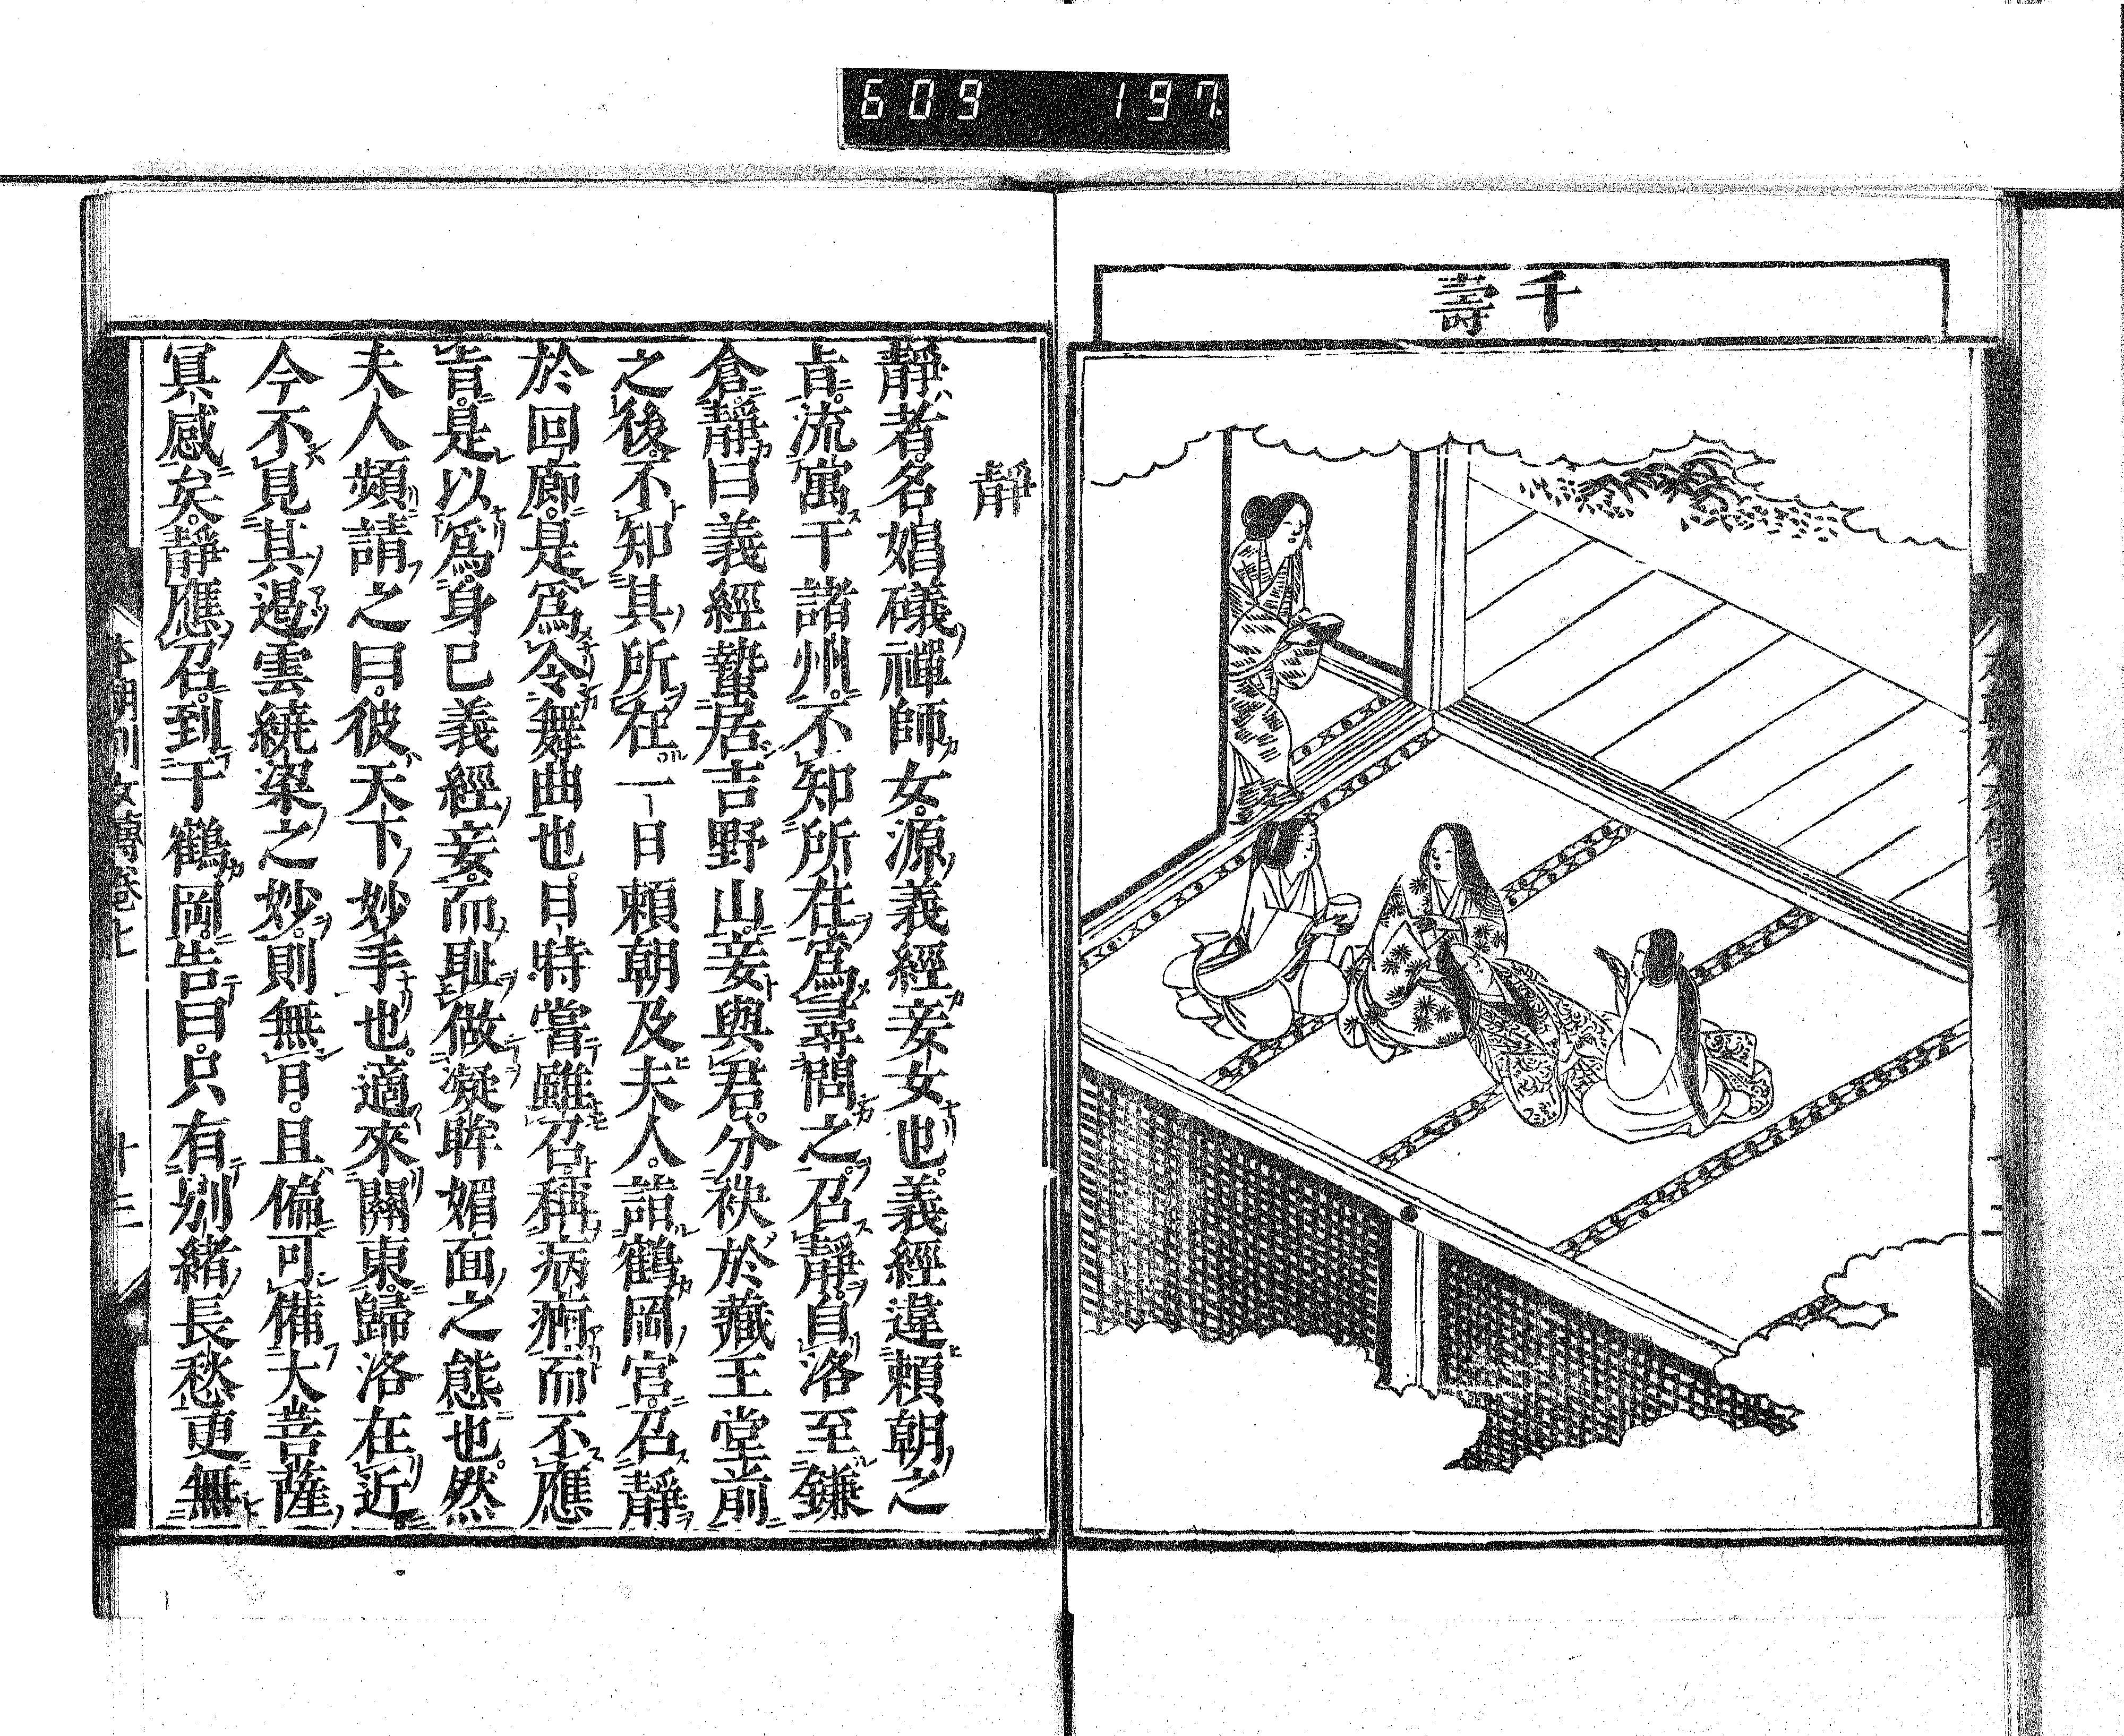 609 197
千壽
靜
靜者。名娼礒禪師女。源義經妾女也。義經違頼朝之
旨。流寓于諸州。不知所在。爲尋問之。召靜。自洛至鎌
倉。靜曰義經蟄居吉野山。妾與君。分袂於藏王堂前
之後。不知其所在。一日頼朝及夫人。詣鶴岡宮。召靜
於回廊。是爲令舞曲也。日時嘗雖召。稱病痾而不應
旨。是以爲身已義經妾。而耻做凝眸媚面之態也。然
夫人頻請之曰。彼天下妙手也。適來關東。歸洛在近
今不見其遏雲繞梁之妙。則無日。且偏可備大菩薩
冥感矣。靜應召。到于鶴岡。告曰。只有別緒長愁更無
本朝列女傳卷七
十三